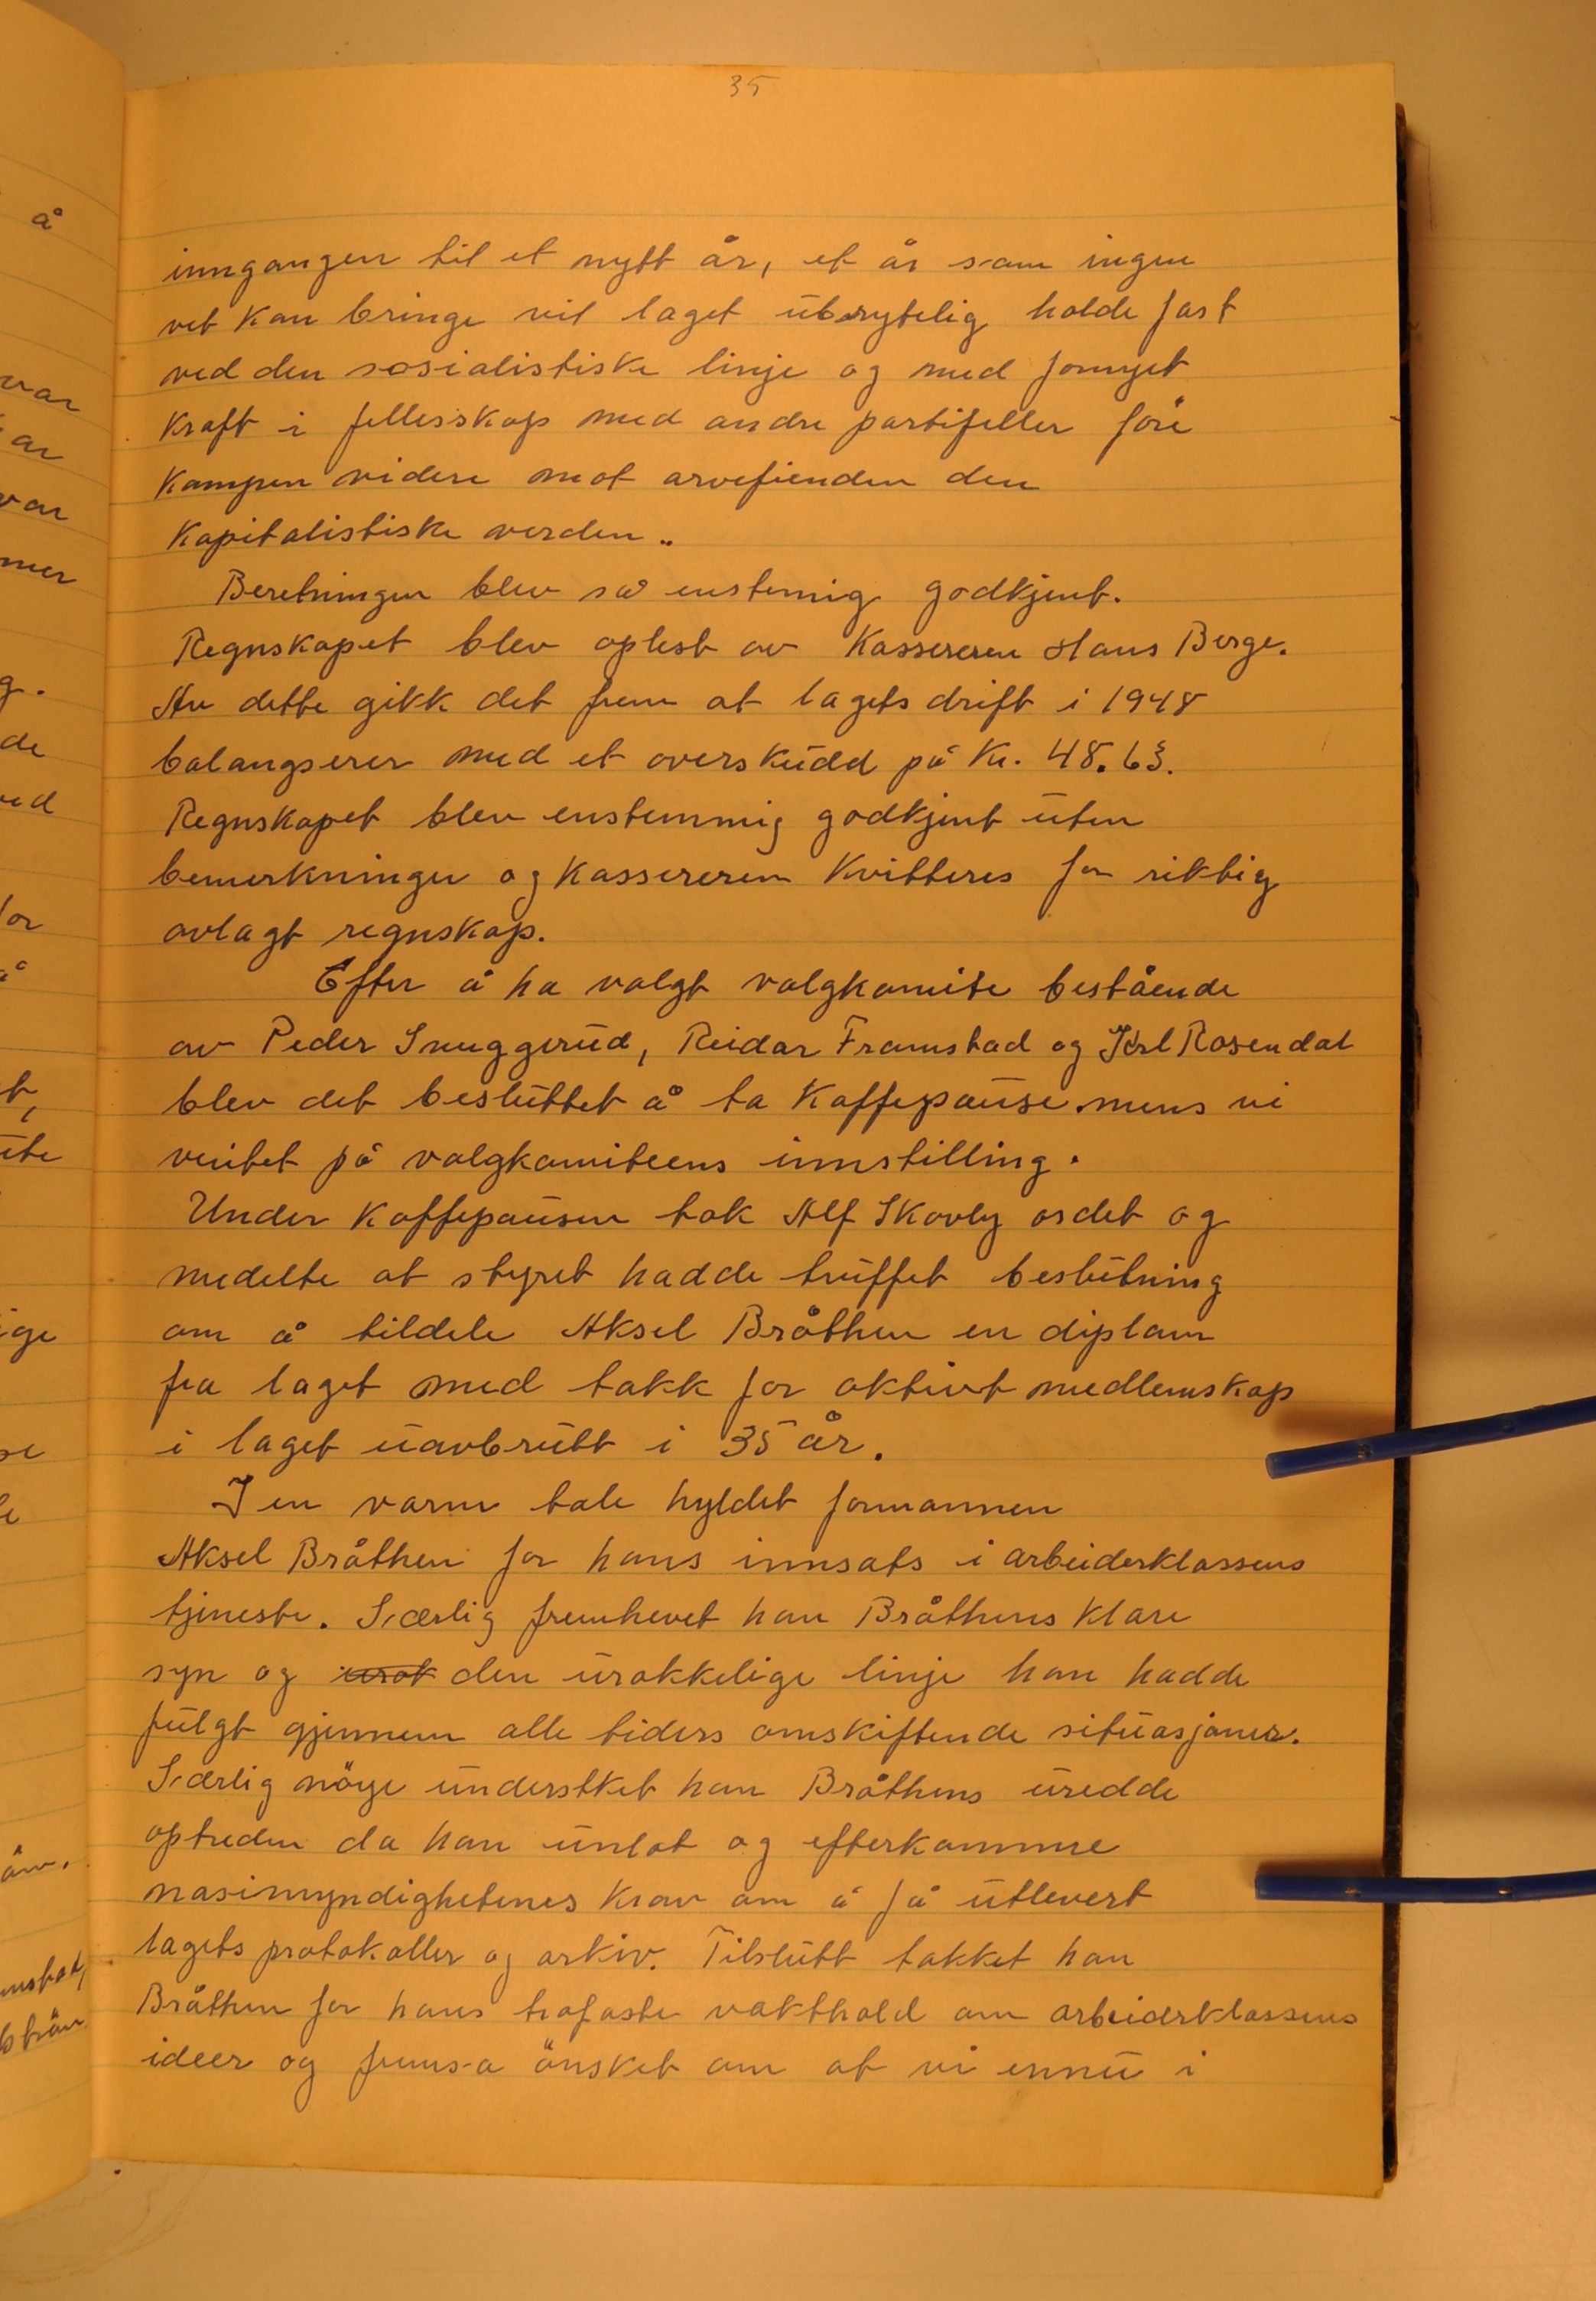 35
inngangen til et nytt år, et år som ingen
vet kan bringe vil laget ubrytelig holde fast
ved den sosialistiske linje og med fornyet
kraft i fellesskap med andre partifeller føre
kampen videre mot arvefienden den
kapitalistiske verden..
Beretningen blev så enstemig godkjent.
Regnskapet blev oplest av Kassereren Hans Berge.
Av dette gikk det frem at lagets drift i 1948
balangserer med et overskudd på Kr. 48.63.
Regnskapet blev enstemmig godkjent uten
bemerkninger og kassereren kvitteres for riktig
avlagt regnskap.
Efter å ha valgt valgkomite bestående
av Peder Snuggerud, Reidar Framstad og Karl Rosendal
blev det besluttet å ta kaffepause mens vi
ventet på valgkomiteens innstilling.
Under kaffepausen tok Alf Skovly ordet og
medelte at styret hadde truffet beslutning
om å tildele Aksel Bråthen en diplom
fra laget med takk for aktivt medlemskap
i laget uavbrutt i 35 år.
I en varm tale hyldet formannen
Aksel Bråthen for hans innsats i arbeiderklassens
tjeneste. Særlig fremhevet han Bråthens klare
syn og urok den urokkelige linje han hadde
fulgt gjennem alle tiders omskiftende situasjoner.
Særlig nöye understket han Bråthens uredde
optreden da han unlot og efterkomme
nasimyndighetenes krav om å få utlevert
lagets protokoller og arkiv. Tilslutt takket han
Bråthen for hans trofaste vakthold om arbeiderklassens
ideer og fremsa önsket om at vi ennu i